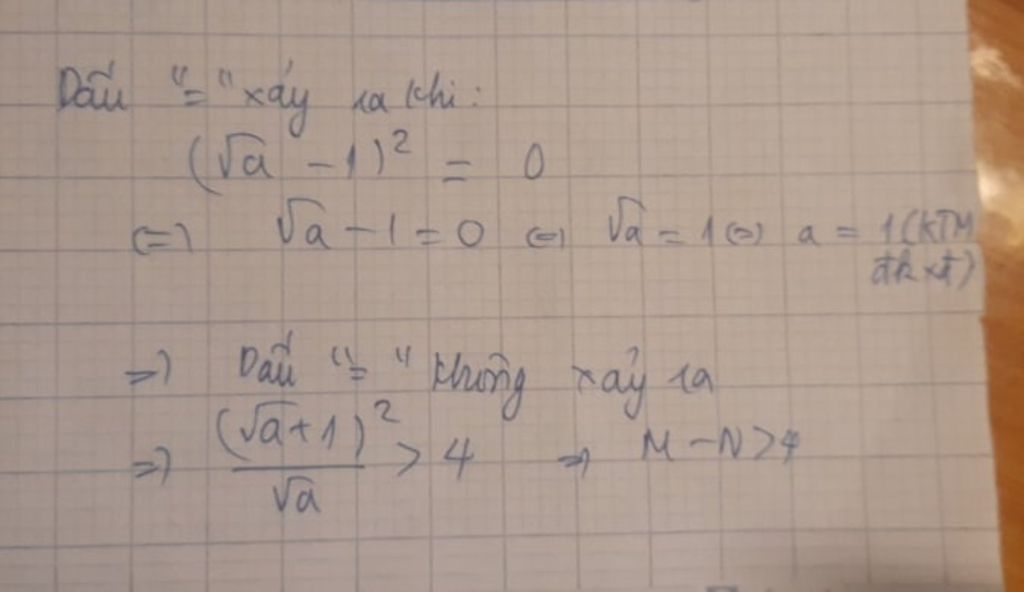 Dấu "=" xảy ra khi:
(√a - 1)² = 0
⇔ √a - 1 = 0 ⇔ √a = 1 ⇔ a = 1 (KTM
đkxđ)
=> Dấu "=" không xảy ra
=> (√a+1)²/√a > 4 => M - N > 4